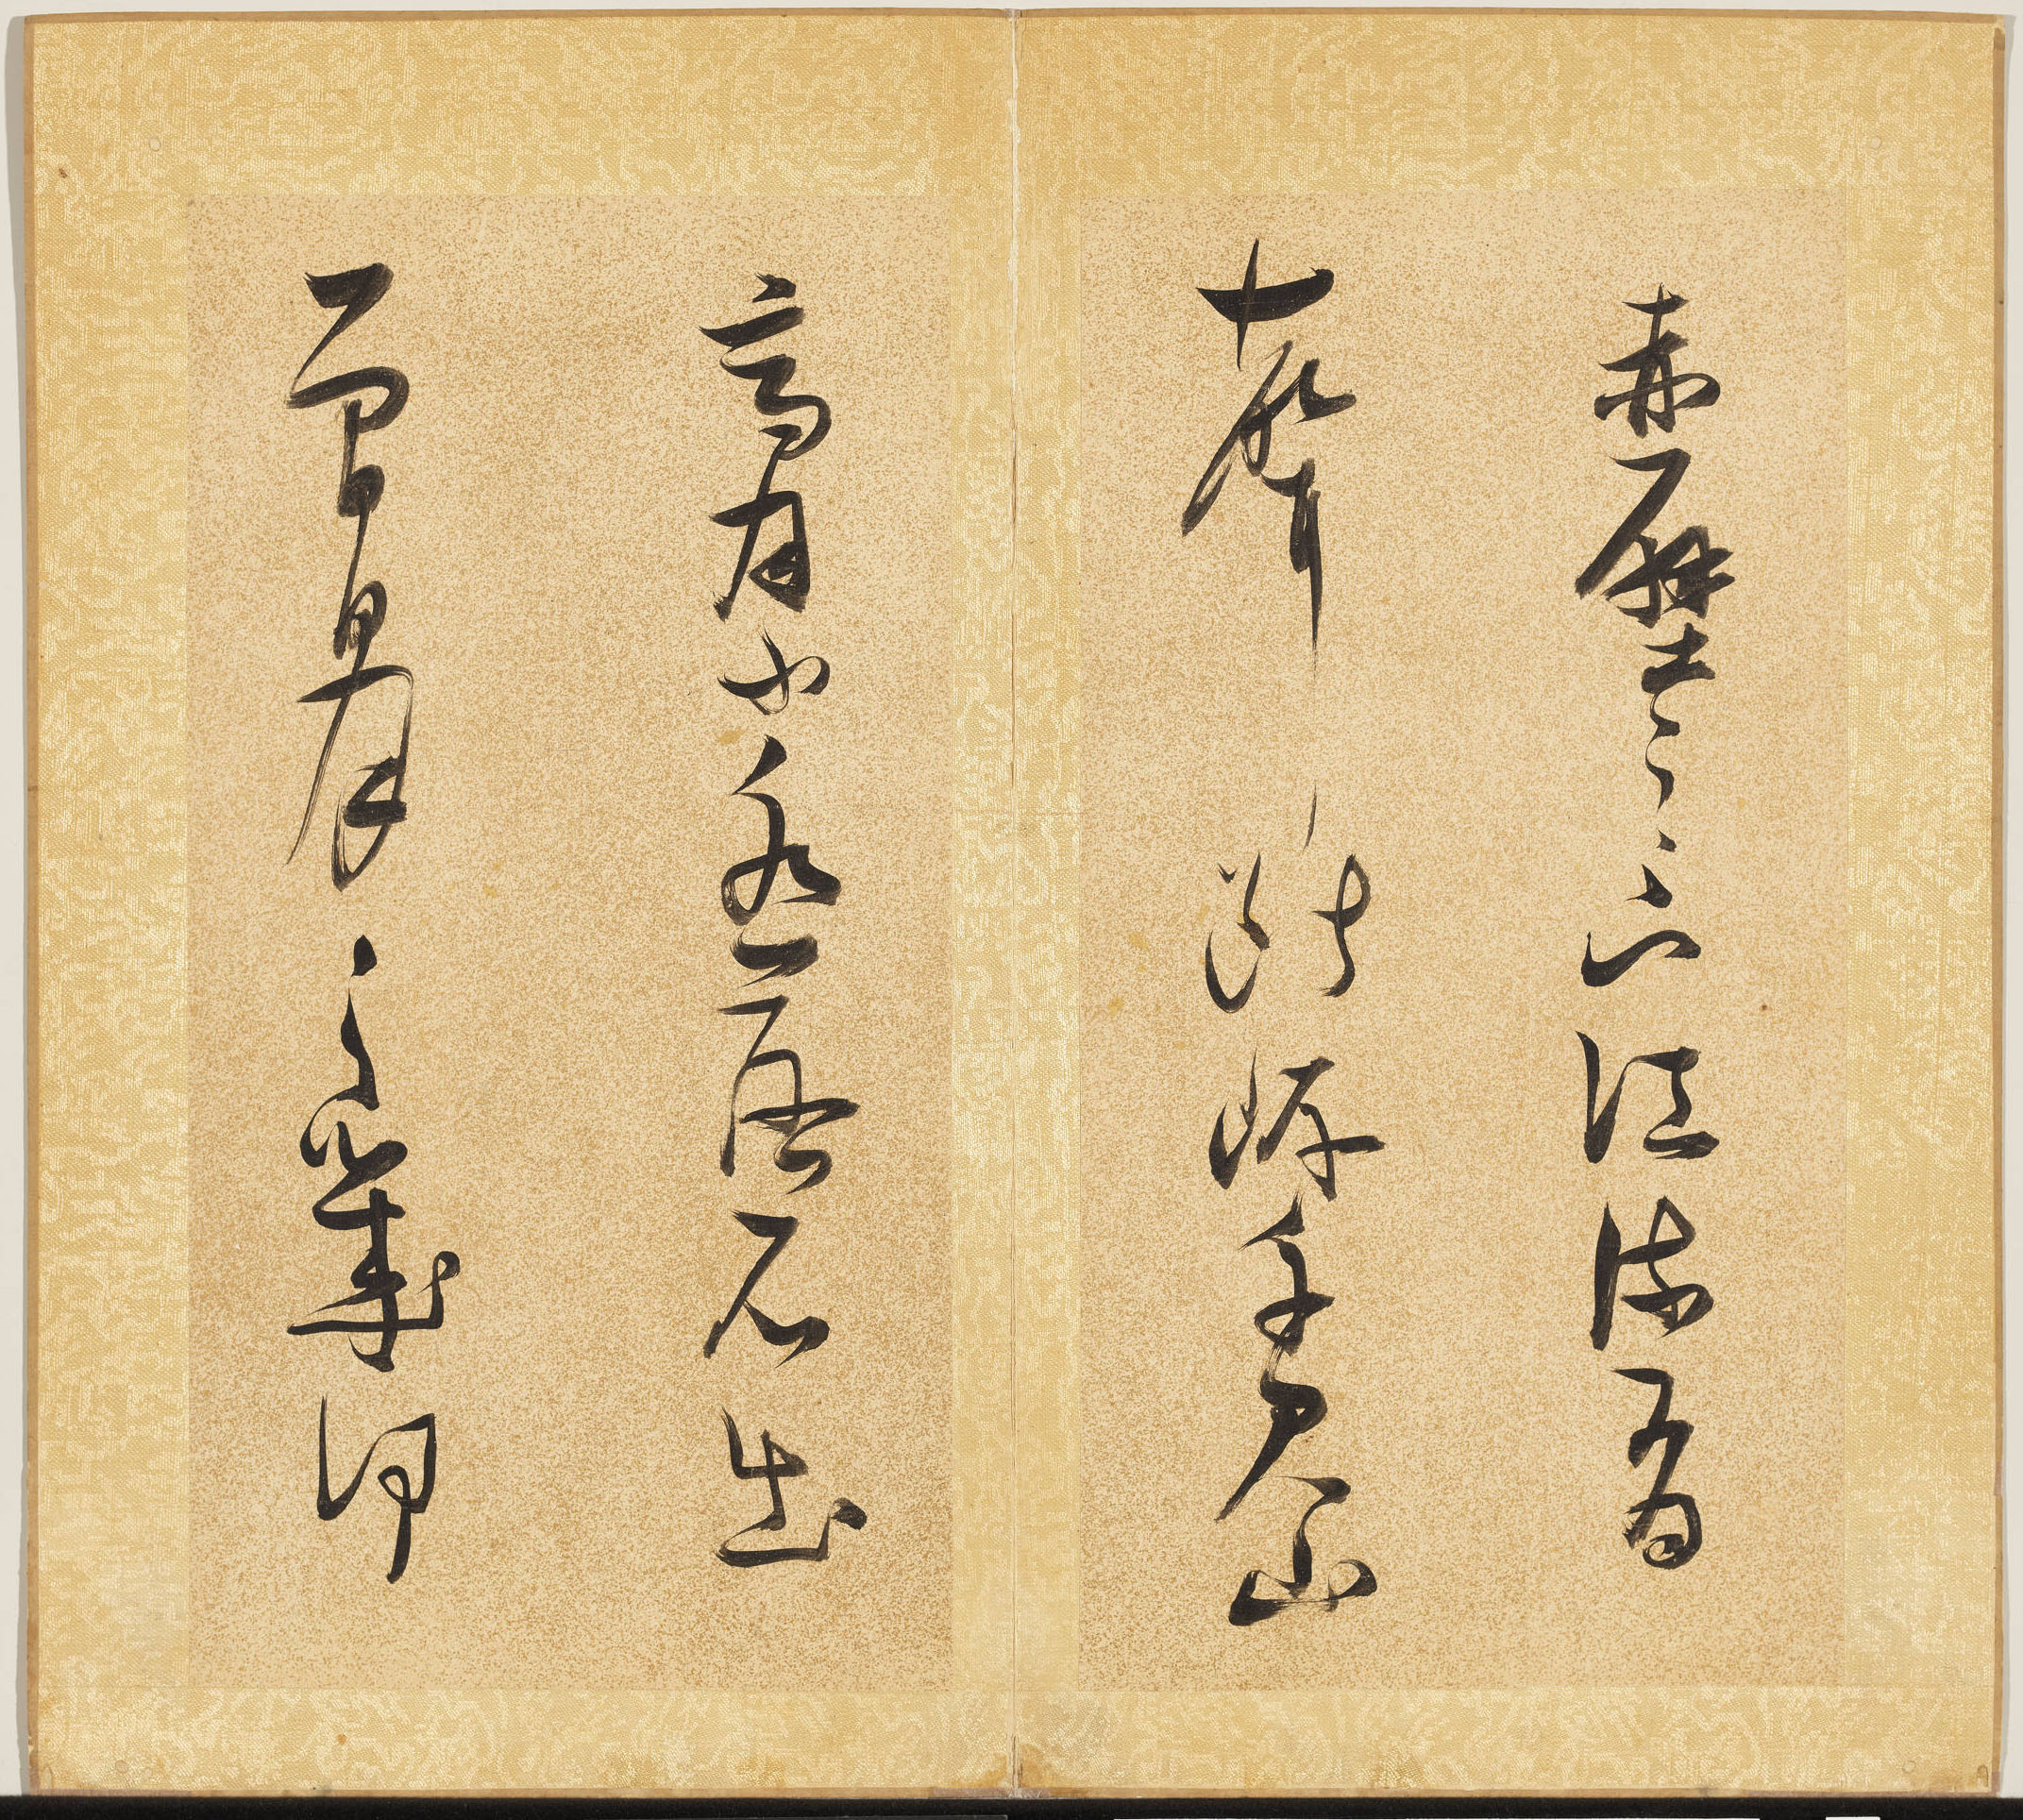 赤壁之下江流有
聲斷岸千尺山
高月小水落石出
曾日月之幾何